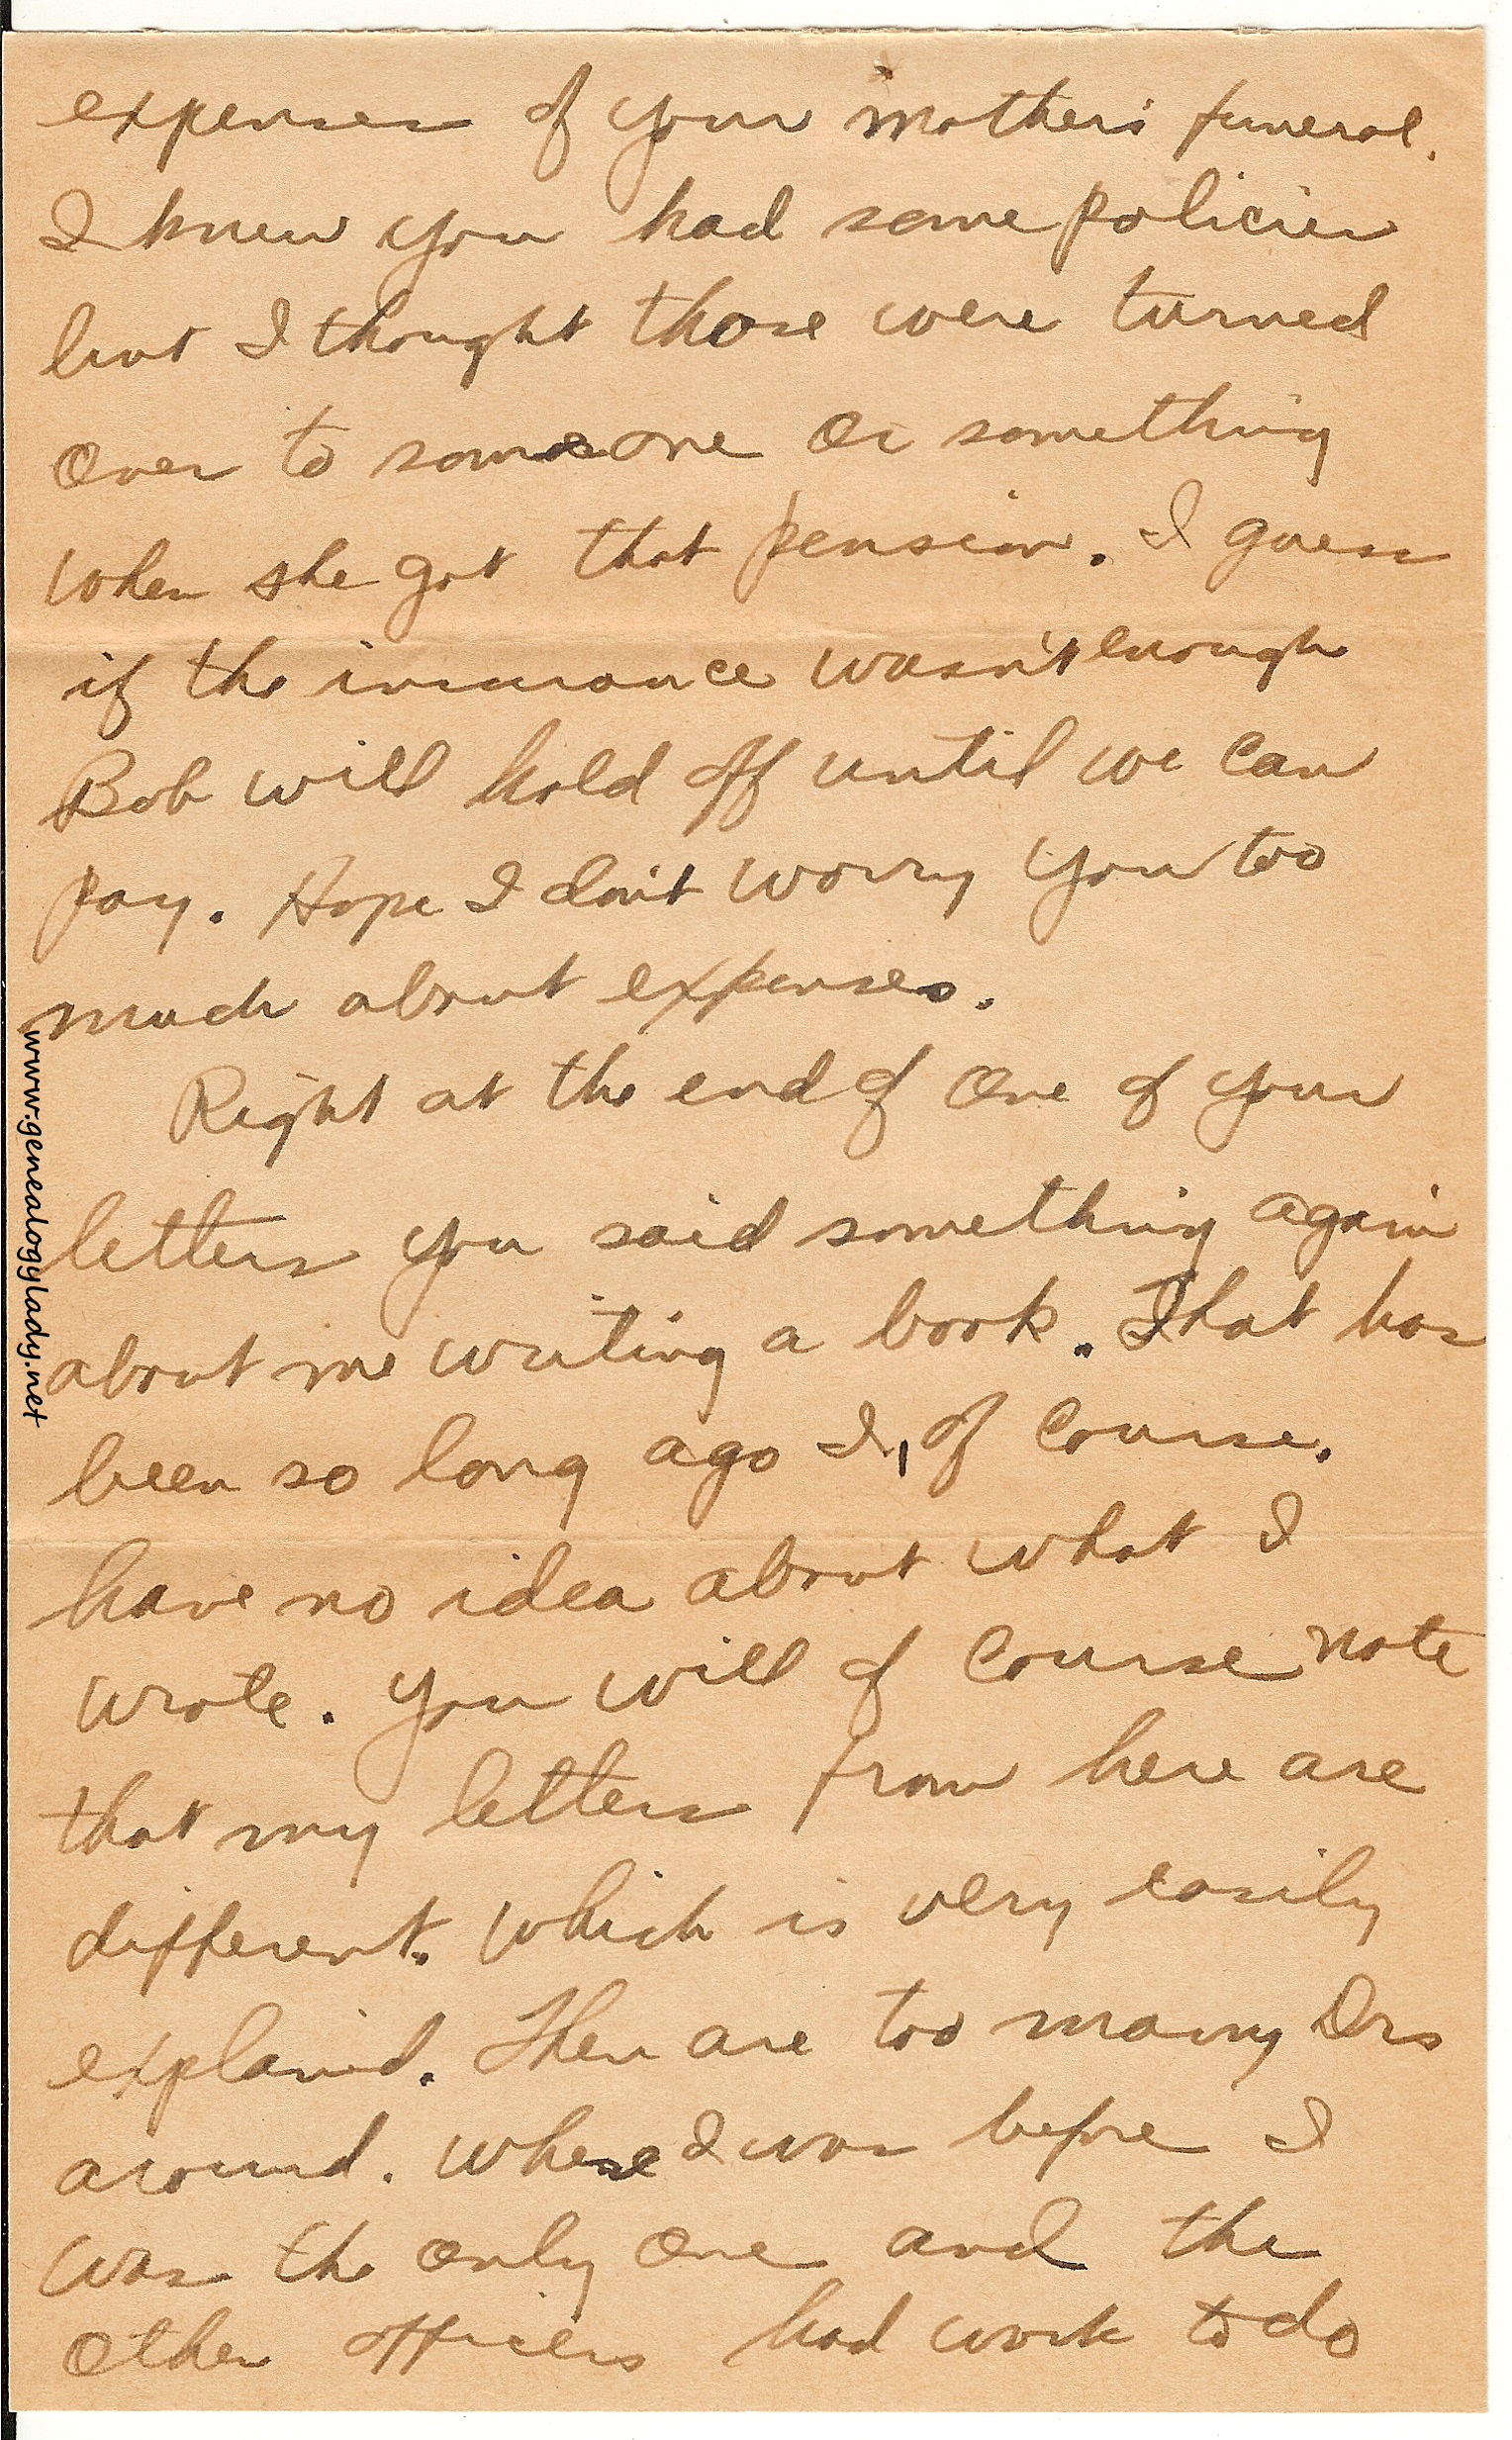 expenses of your mother's funeral.
I knew you had some policies
but I thought those were turned
over to someone or something
when she got that pension. I guess
if the insurance wasn't enough
Bob will hold off until we can
pay. Hope I don't worry you too
much about expenses.
Right at the end of one of your
letters you said something again
about me writing a book. That has
been so long ago I, of course.
have no idea about what I
wrote. You will of course note
that my letters from here are
different. Which is very easily
explained. There are too many Drs
around. Where I was before I
was the only one and the
other officers had work to do
www.genealogylady.net